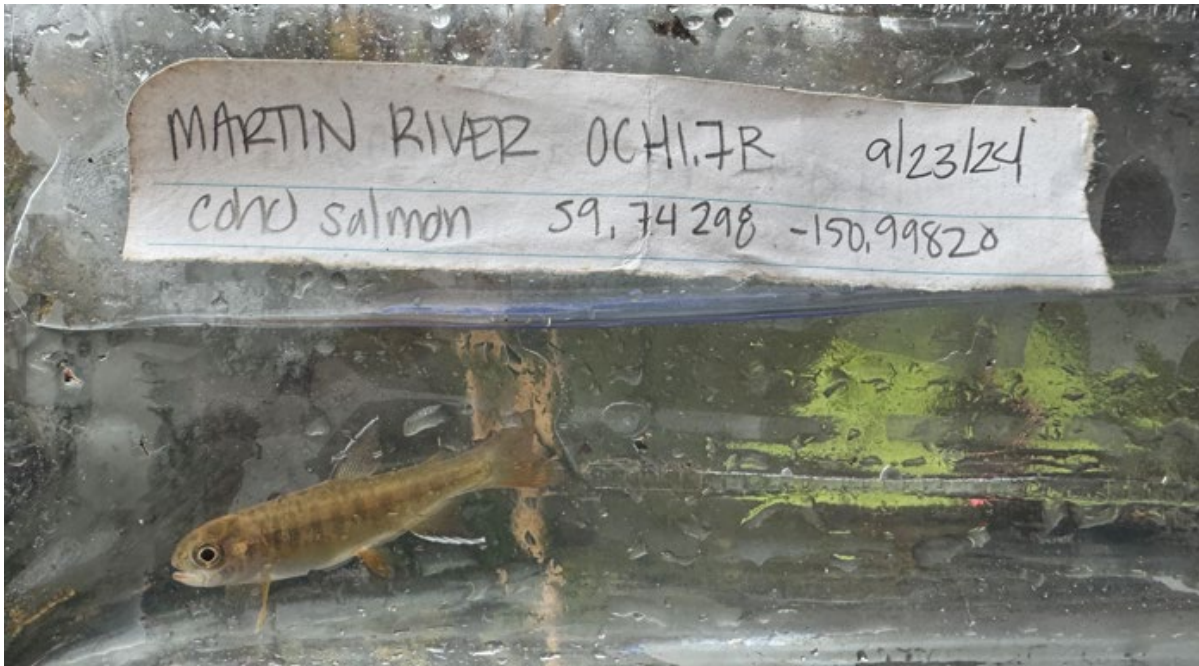 MARTIN RIVER OCH1.7R 9/23/24
coho salmon 59.74298 -150.99820